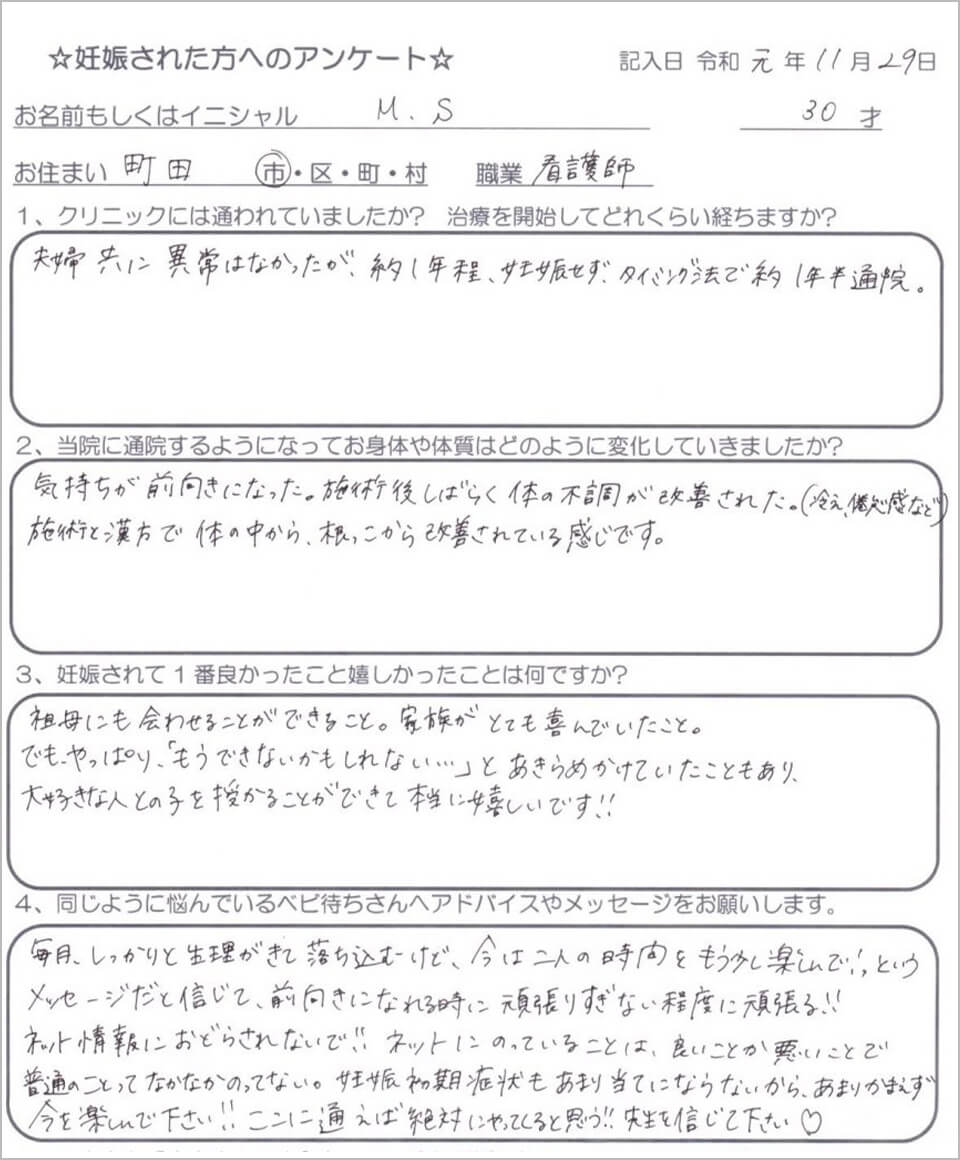 ☆妊娠された方へのアンケート☆ 記入日 令和 元 年 11 月 29 日
お名前もしくはイニシャル M.S 30 才
お住まい 町田 市・区・町・村 職業 看護師
1、クリニックには通われていましたか? 治療を開始してどれくらい経ちますか?
夫婦共に異常はなかったが、約1年程、妊娠せず、タイミング法で約1年半通院。
2、当院に通院するようになってお身体や体質はどのように変化していきましたか?
気持ちが前向きになった。施術後しばらく体の不調が改善された。(冷え、倦怠感など)
施術と漢方で体の中から、根っこから改善されている感じです。
3、妊娠されて1番良かったこと嬉しかったことは何ですか?
祖母にも会わせることができること。家族がとても喜んでいたこと。
でも、やっぱり、「もうできないかもしれない…」とあきらめかけていたこともあり、
大好きな人との子を授かることができて本当に嬉しいです!!
4、同じように悩んでいるベビ待ちさんへアドバイスやメッセージをお願いします。
毎月、しっかりと生理がきて落ち込むけど、今は二人の時間をもう少し楽しんで!、という
メッセージだと信じて、前向きになれる時に頑張りすぎない程度に頑張る!!
ネット情報におどらされないで!! ネットにのっていることは、良いことか悪いことで
普通のことってなかなかのってない。妊娠初期症状もあまり当てにならないから、あまりかまえず
今を楽しんで下さい!! ここに通えば絶対にやってくると思う!! 先生を信じて下さい♡